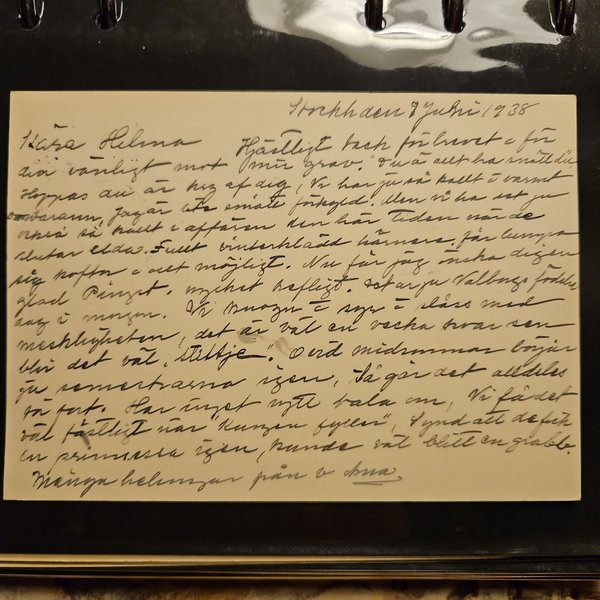 Stockh den 9 Juni 1938
Kära Helma Hjärtligt tack för brevet o för
din vänligt mot min grav. Du är allt bra snäll du
Hoppas du är kry af dig, Vi har ju så kallt o varmt
Jag är lite smått förkyld. Men vi ha det ju
också så kallt i affären den här tiden när de
slutar elda. Fullt vinterklädd härnere, får krympa
sig koffta o det möjligt. Nu får jag önska digen
glad Pingst, mycket trefligt. Det är ju Valborgs födelse
dag i morgon. Vi knoga o syr o slåss med
det är väl en vecka kvar sen
blir det väl "stiltje". O vid midsommar börjar
ju semestrarna igen, Så går det alldeles
så fort. Har inget nytt tala om, Vi få det
väl fästligt när "Kungen fyller", Synd att de fick
en prinsessa igen, kunde väl blitt en grabb.
Många helsningar från v Ana.